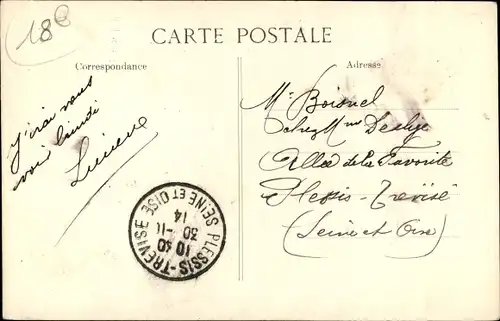 18€
CARTE POSTALE
Correspondance
Adresse
J'irai vous
voir lundi
Lucienne
Mr Boisnel
chez Mme
Allée de la Favorite
Plessis-Trévise
(Seine et Oise)
PLESSIS-TREVISE
SEINE ET OISE
10 40
30-11
14